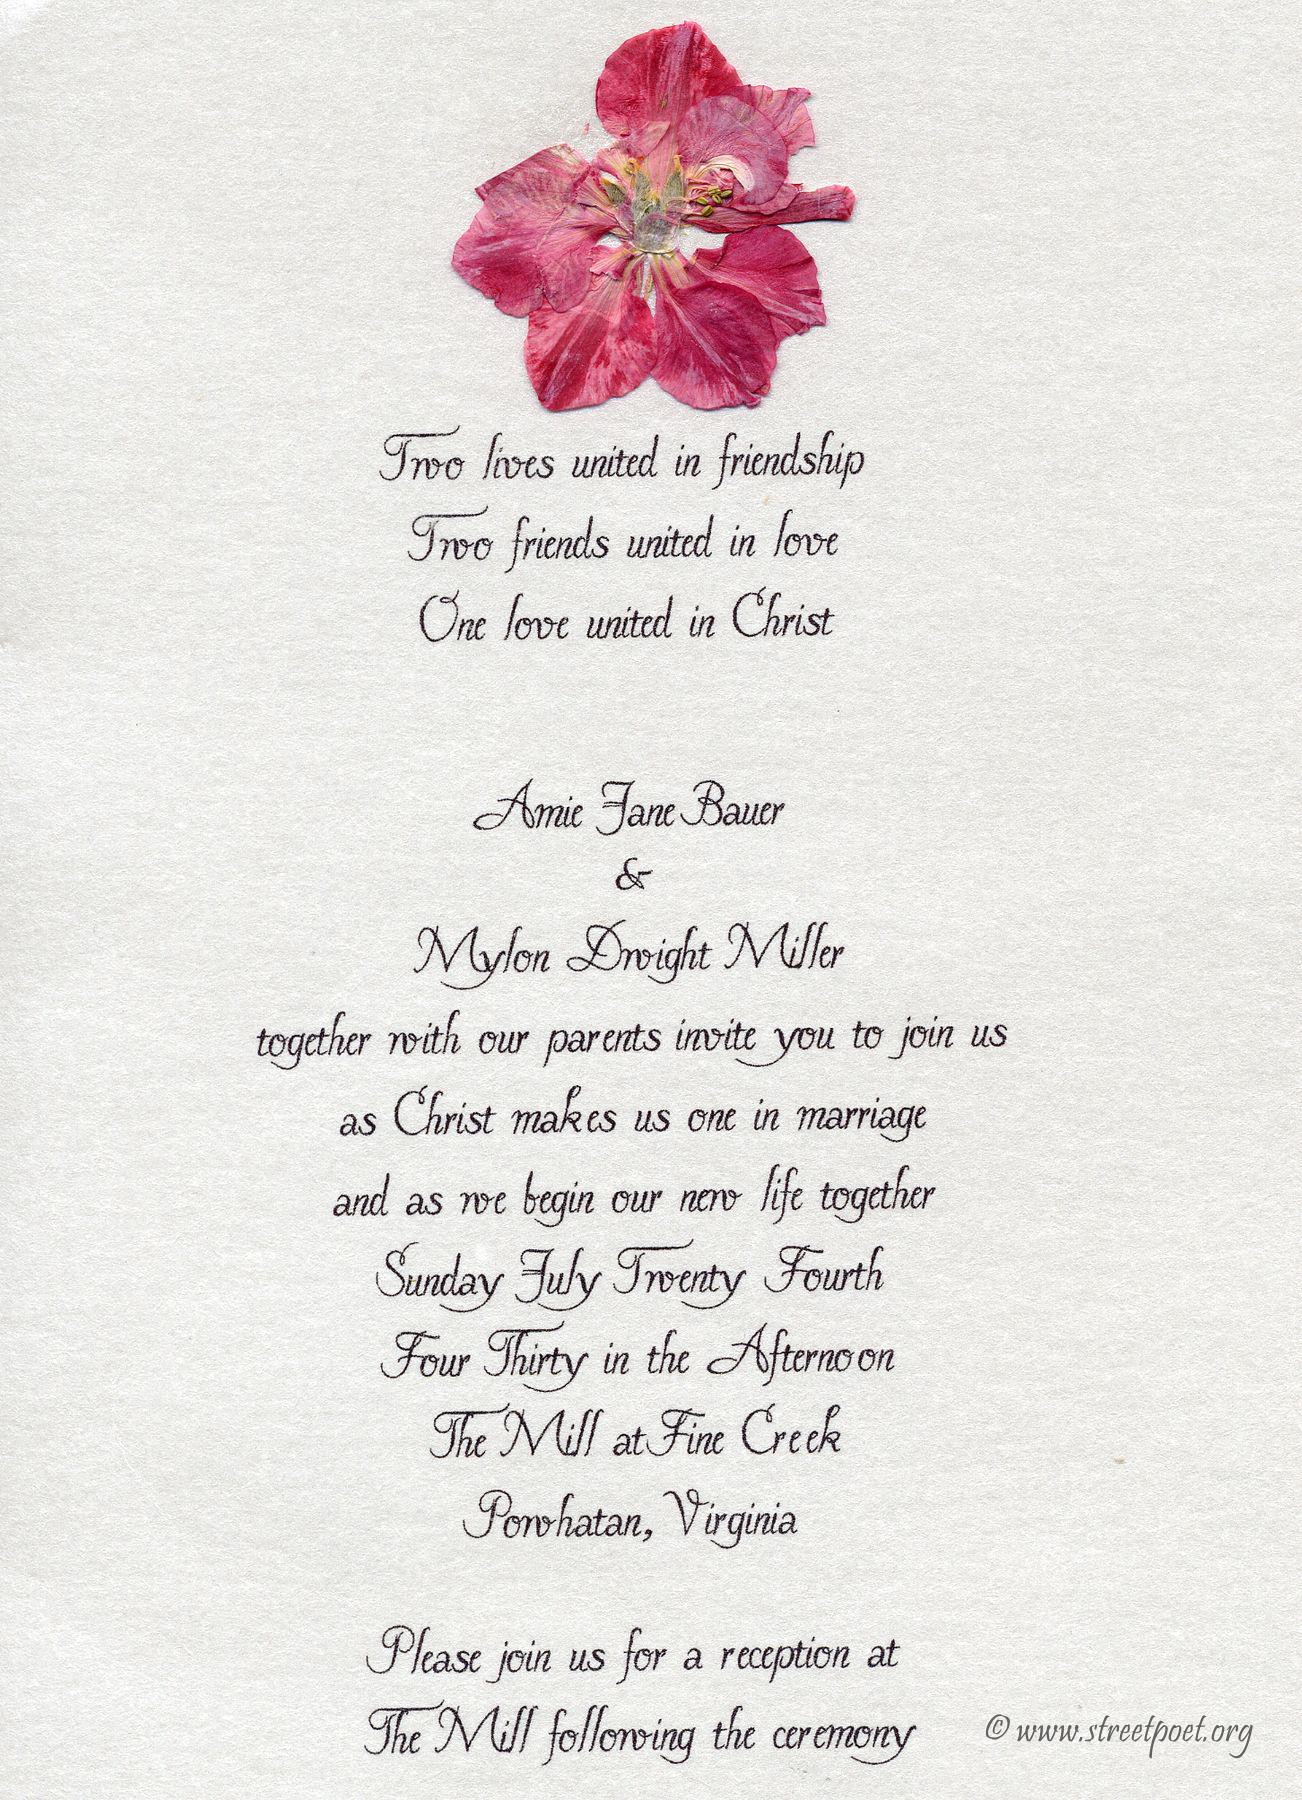 Two lives united in friendship
Two friends united in love
One love united in Christ
Amie Jane Bauer
&
Mylon Dwight Miller
together with our parents invite you to join us
as Christ makes us one in marriage
and as we begin our new life together
Sunday July Twenty Fourth
Four Thirty in the Afternoon
The Mill at Fine Creek
Powhatan, Virginia
Please join us for a reception at
The Mill following the ceremony
© www.streetpoet.org